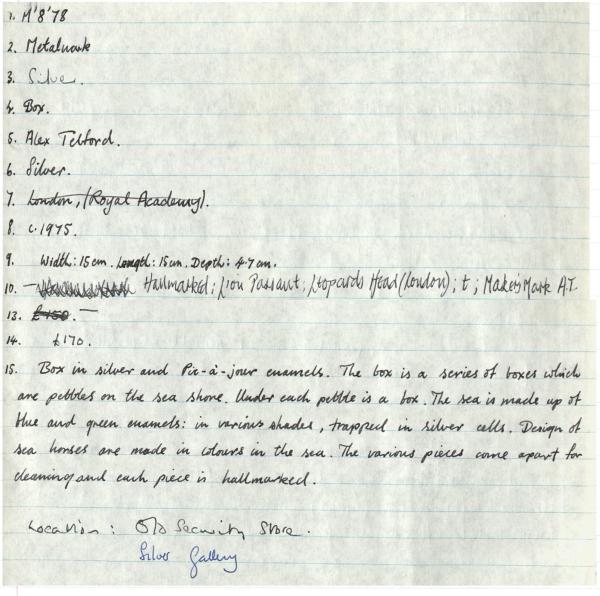 1. M'8'78
2. Metalwork
3. Silver.
4. Box.
5. Alex Telford.
6. Silver.
7. London, (Royal Academy).
8. c.1975.
9. Width: 15cm. Length: 15cm. Depth: 4.7cm.
10. — Hallmarked; Lion Passant; Leopards Head (London); t; Makers Mark A.T.
13. £150. —
14. £170.
15. Box in silver and Plic-à-jour enamels. The box is a series of boxes which
are pebbles on the sea shore. Under each pebble is a box. The sea is made up of
blue and green enamels: in various shades, trapped in silver cells. Design of
sea horses are made in colours in the sea. The various pieces come apart for
cleaning and each piece is hallmarked.
Location: Old Security Store.
Silver Gallery